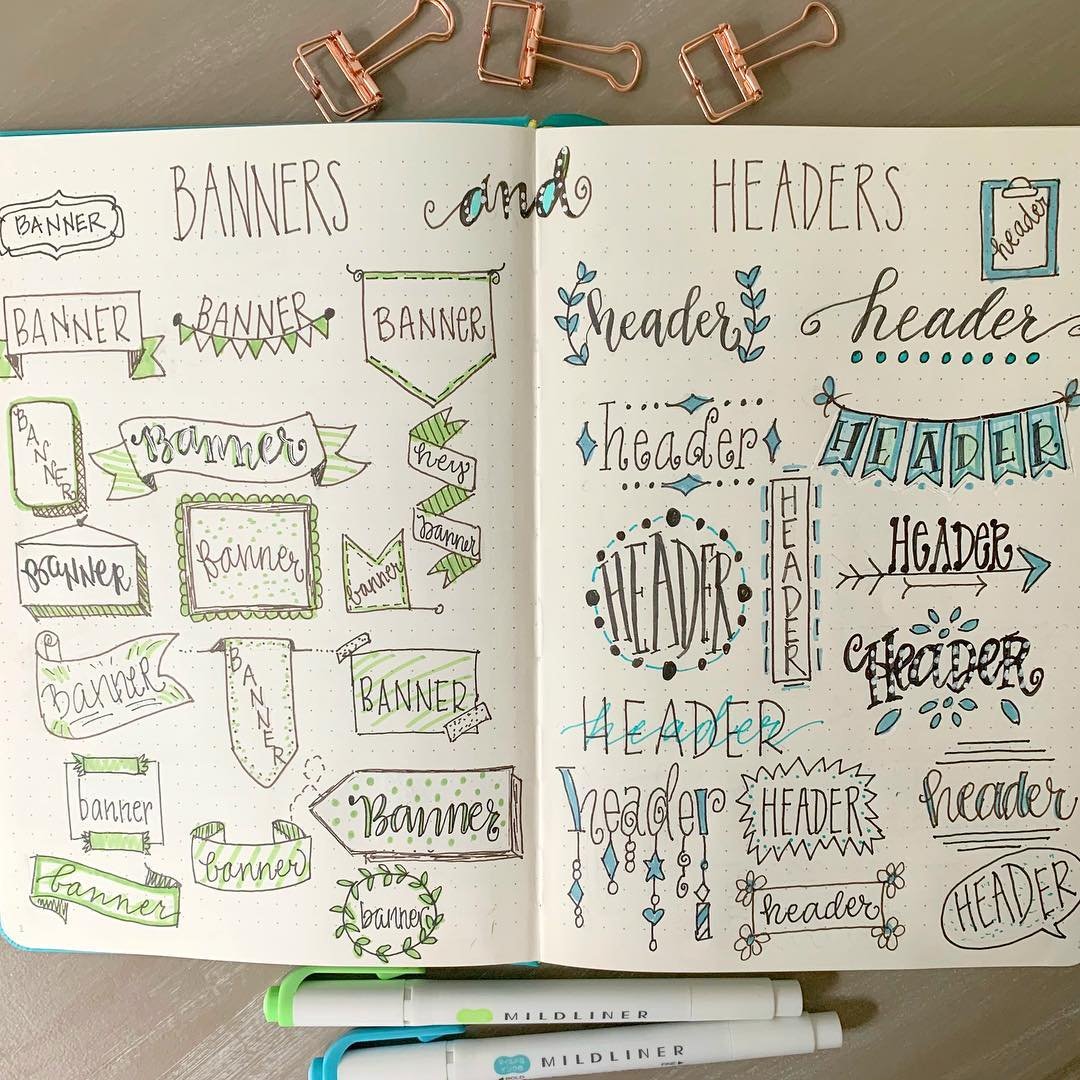 BANNERS and HEADERS
BANNER
BANNER
BANNER
BANNER
BANNER
Banner
hey
banner
BANNER
banner
banner
Banner
BANNER
BANNER
banner
Banner
banner
banner
banner
header
header
header
header
HEADER
HEADER
HEADER
HEADER
Header
HEADER
header
header
HEADER
header
header
HEADER
MILDLINER
MILDLINER
BOLD
FINE